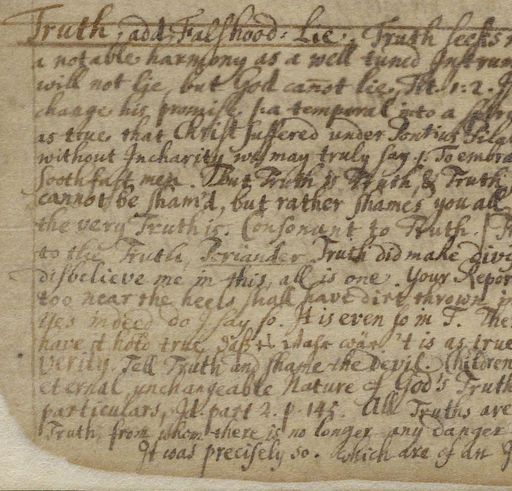 Truth, add Falshood: Lie. Truth seeks
a notable harmony as a well tuned Instrum
will not lie, but God canot lie, Tit. 1:2.
change his promise p:a temporal into a
as true that Christ suffered under Pontius Pila
without Incharity we may truly say
Soothfast men. But Truth is Truth, & Truth
cannot be sham'd, but rather shames you all
the very Truth is. Consonant to Truth.
to the Truth Periander. Truth did make divi
disbelieve me in this, all is one. Your Repor
too near the heels shall have dirt thrown
yes indeed do I say so. It is even so in T. The
have it hold true, 't is as true
verity. Tell Truth and shame the devil. Children
eternal unchangeable Nature of God's Truth
particulars, Jt. part 2. p. 145. All Truths are
Truth, from whom there is no longer any danger
It was precisely so. which are of an